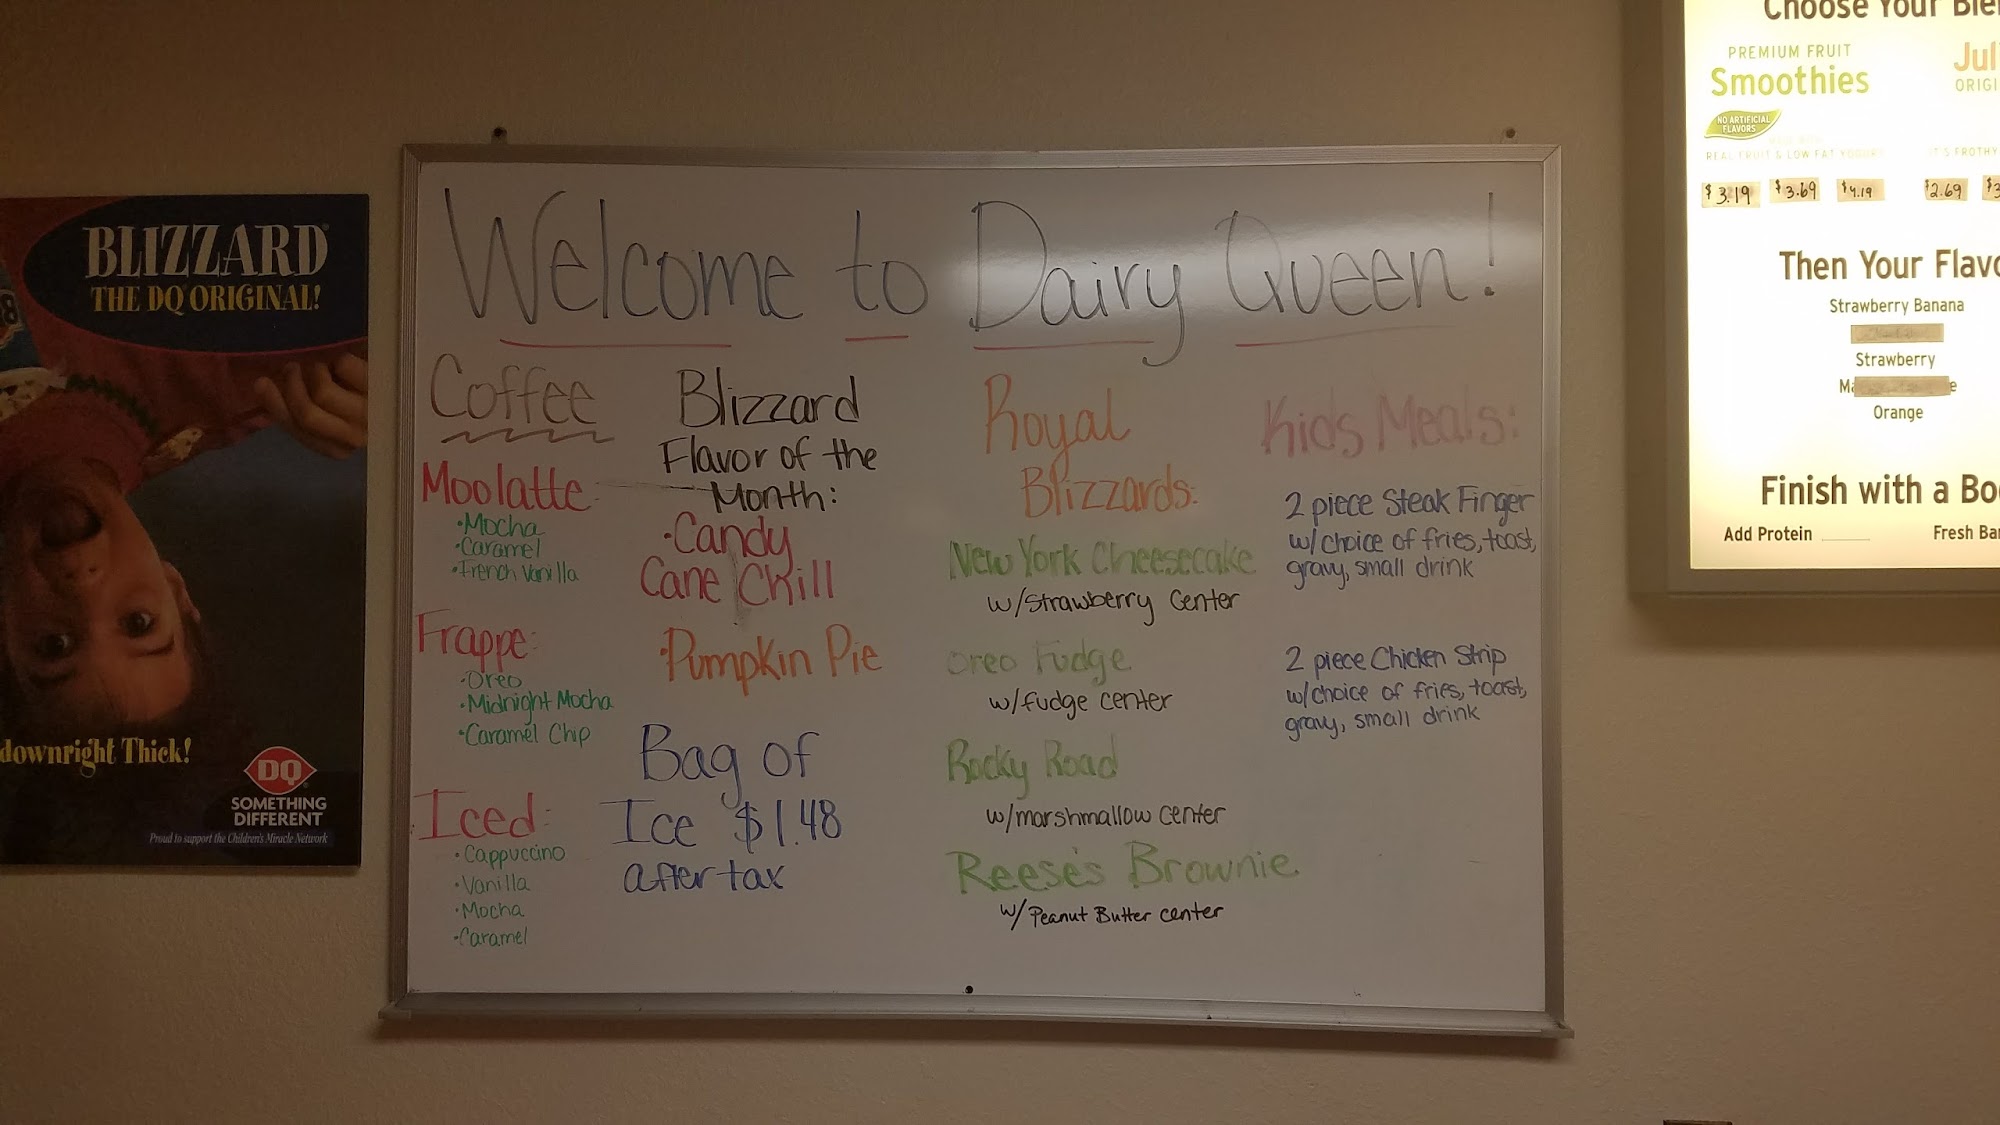 BLIZZARD
THE DQ ORIGINAL!
downright Thick!
DQ
SOMETHING
DIFFERENT
Proud to support the Children's Miracle Network
Welcome to Dairy Queen!
Coffee
Moolatte:
•Mocha
•Caramel
•French Vanilla
Frappe:
•Oreo
•Midnight Mocha
•Caramel Chip
Iced:
•Cappuccino
•Vanilla
•Mocha
•Caramel
Blizzard
Flavor of the
Month:
•Candy
Cane Chill
•Pumpkin Pie
Bag of
Ice $1.48
after tax
Royal
Blizzards:
New York Cheesecake
w/strawberry center
Oreo Fudge
w/fudge center
Rocky Road
w/marshmallow center
Reese's Brownie
w/ Peanut Butter center
Kids Meals:
2 piece Steak Finger
w/choice of fries, toast,
gravy, small drink
2 piece Chicken Strip
w/choice of fries, toast,
gravy, small drink
Choose Your Ble
PREMIUM FRUIT
Smoothies
NO ARTIFICIAL
FLAVORS
REAL FRUIT & LOW FAT YOGURT
$3.19 $3.69 $4.19
Jul
ORIGI
IT'S FROTHY
$2.69 $3
Then Your Flavo
Strawberry Banana
Strawberry
Orange
Finish with a Boo
Add Protein
Fresh Ba